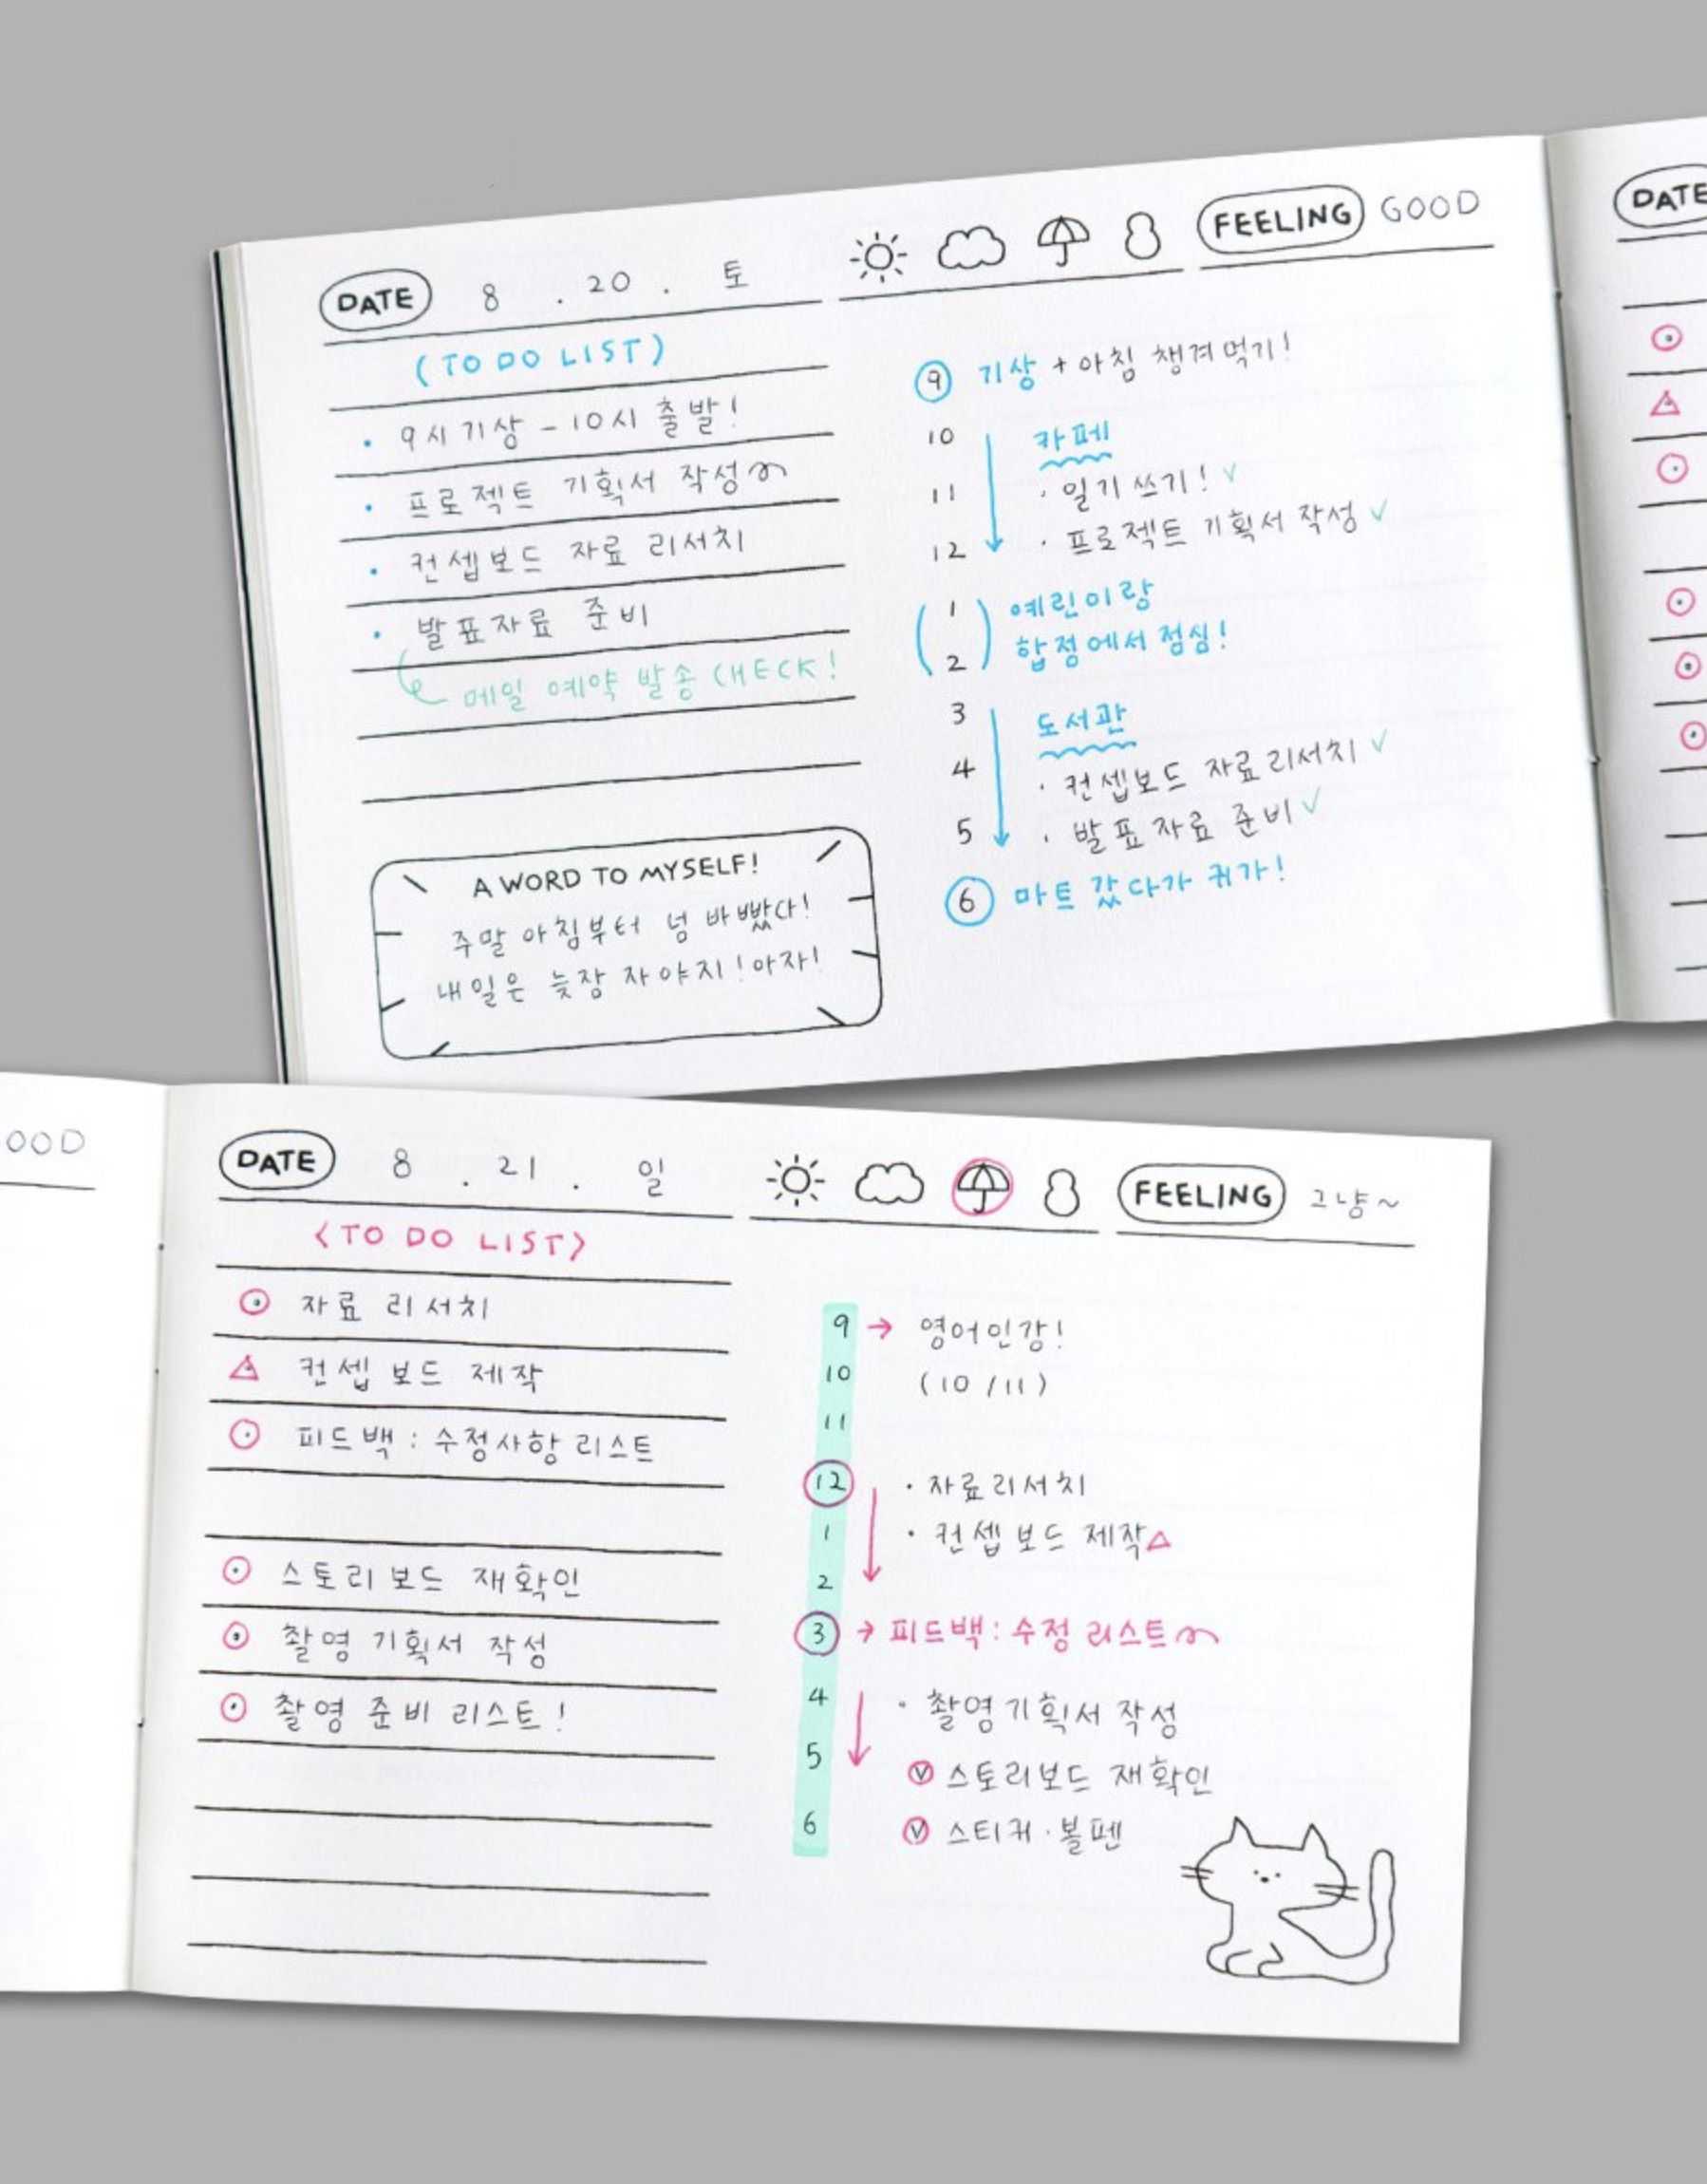 DATE 8 . 20 . 토
FEELING GOOD
(TO DO LIST)
· 9시 기상 - 10시 출발!
· 프로젝트 기획서 작성
· 컨셉보드 자료 리서치
· 발표자료 준비
메일 예약 발송 CHECK!
A WORD TO MYSELF!
주말 아침부터 넘 바빴다!
내일은 늦장 자야지! 아자!
9 기상 + 아침 챙겨먹기!
10 카페
11 · 일기 쓰기! ✓
12 · 프로젝트 기획서 작성 ✓
1 예린이랑
2 합정에서 점심!
3 도서관
4 · 컨셉보드 자료 리서치 ✓
5 · 발표자료 준비 ✓
6 마트 갔다가 귀가!
DATE
OOD
DATE 8 . 21 . 일
FEELING 그냥~
<TO DO LIST>
자료 리서치
컨셉보드 제작
피드백 : 수정사항 리스트
스토리보드 재확인
촬영 기획서 작성
촬영 준비 리스트!
9 → 영어인강!
10 (10/11)
11
12 · 자료리서치
1 · 컨셉보드 제작△
2
3 → 피드백: 수정 리스트
4 · 촬영기획서 작성
5 ✓ 스토리보드 재확인
6 ✓ 스티커·볼펜